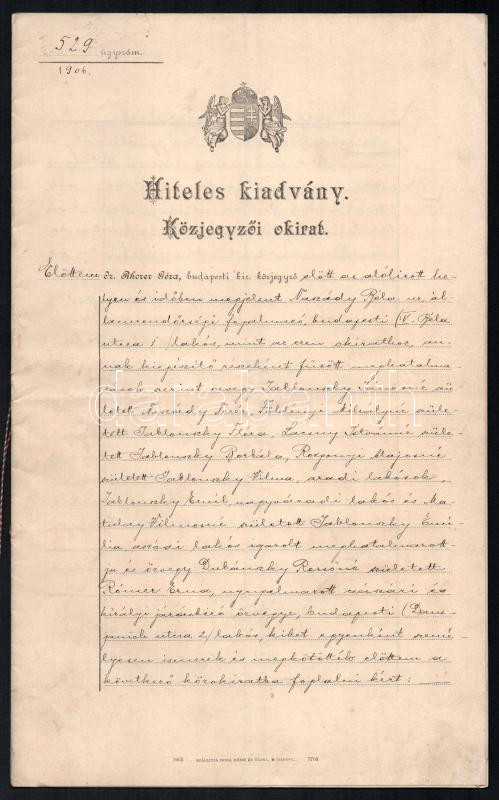 529 ügyszám.
1906.
Hiteles kiadvány.
Közjegyzői okirat.
Előttem dr. Rhorer Géza, budapesti kir. közjegyző előtt az alólirott he-
lyen és időben megjelent Naszády Béla ur ál-
lamrendőrségi fogalmazó, budapesti (IV. Béla
utcza 1) lakós, mint az ezen okirathoz, an-
nak kiegészitő részeként fűzött meghatalma-
zások szerint özvegy Jablonszky Jánosné szü-
letett Naszády Teréz, Földényi Mihályné szüle-
tett Jablonszky Flóra, Lacsny Istvánné szület-
tett Jablonszky Borbála, Rozsnyi Lajosné
született Jablonszky Vilma, aradi lakósok,
Jablonszky Emil, nagyváradi lakós és Ma-
tulay Vilmosné született Jablonszky Emi-
lia, aszódi lakós igazolt meghatalmazott-
ja és özvegy Dubánszky Rezsőné született
Rómer Erna, nyugalmazott császári és
királyi járásbiró özvegye, budapesti (Dam-
janich utcza 2) lakós, kiket egyenként szemé-
lyesen ismerek és megkötötték előttem a
következő közokiratba foglalni kért: